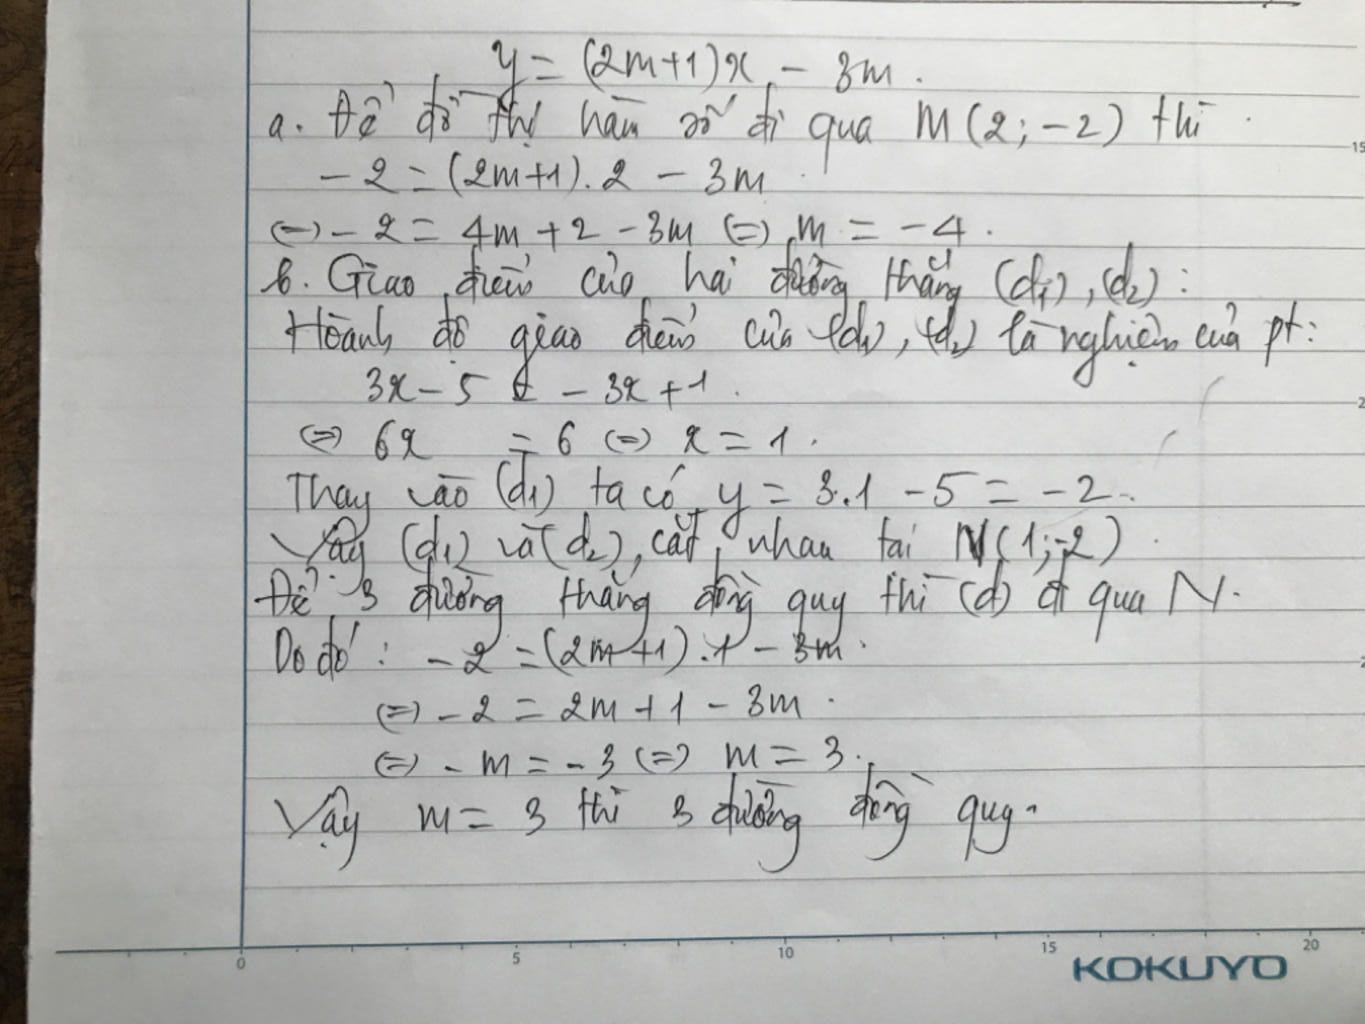 y = (2m+1)x - 3m.
a. Để đồ thị hàm số đi qua M(2;-2) thì
-2 = (2m+1).2 - 3m
(=) -2 = 4m + 2 - 3m (=) m = -4.
b. Giao điểm của hai đường thẳng (d1), (d2):
Hoành độ giao điểm của (d1), (d2) là nghiệm của pt:
3x - 5 = -3x + 1.
(=) 6x = 6 (=) x = 1.
Thay vào (d1) ta có y = 3.1 - 5 = -2.
Vậy (d1) và (d2) cắt nhau tại N(1;-2).
Để 3 đường thẳng đồng quy thì (d) đi qua N.
Do đó: -2 = (2m+1).1 - 3m.
(=) -2 = 2m + 1 - 3m.
(=) -m = -3 (=) m = 3.
Vậy m = 3 thì 3 đường đồng quy.
15
0 5 10 15 20
KOKUYO